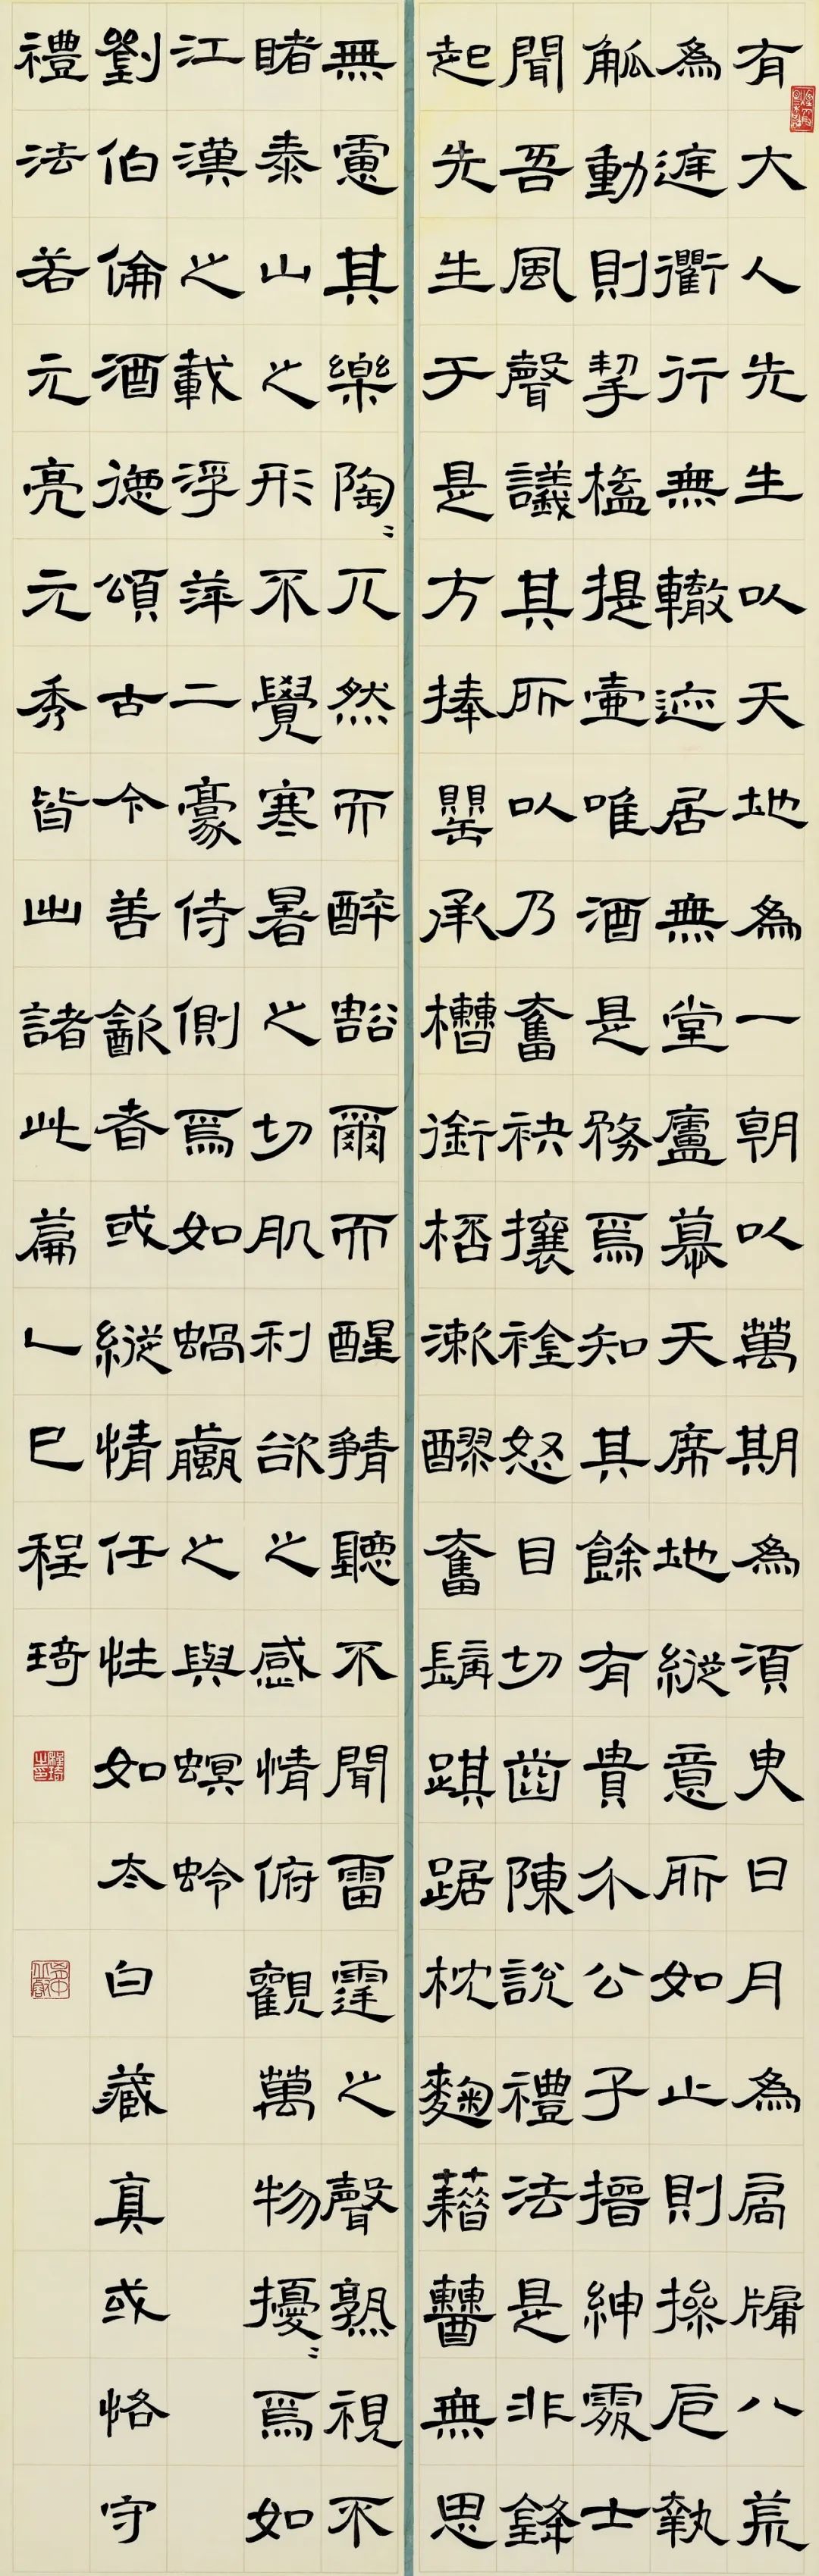 有大人先生以天地為一朝以萬期為須臾日月為扃牖八荒
為庭衢行無轍迹居無堂廬幕天席地縱意所如止則操卮執
觚動則挈榼提壺唯酒是務焉知其餘有貴介公子搢紳處士
聞吾風聲議其所以乃奮袂攘襟怒目切齒陳說禮法是非鋒
起先生于是方捧罌承槽銜桮漱醪奮髯踑踞枕麴藉糟無思
無慮其樂陶〻兀然而醉豁爾而醒靜聽不聞雷霆之聲熟視不
睹泰山之形不覺寒暑之切肌利欲之感情俯觀萬物擾〻焉如
江漢之載浮萍二豪侍側焉如蝸蠃之與螟蛉
劉伯倫酒德頌古今善飲者或縱情任性如太白藏真或恪守
禮法若元亮元秀皆出諸此篇乙巳程琦
程琦之印